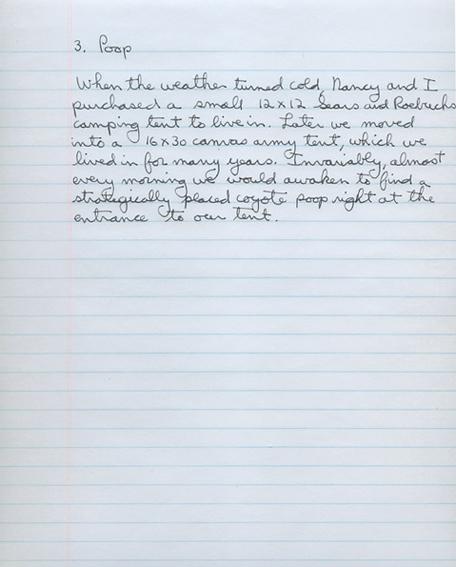 3. Poop
When the weather turned cold, Nancy and I
purchased a small 12x12 Sears and Roebucks
camping tent to live in. Later we moved
into a 16x30 canvas army tent, which we
lived in for many years. Invariably, almost
every morning we would awaken to find a
strategically placed coyote poop right at the
entrance to our tent.